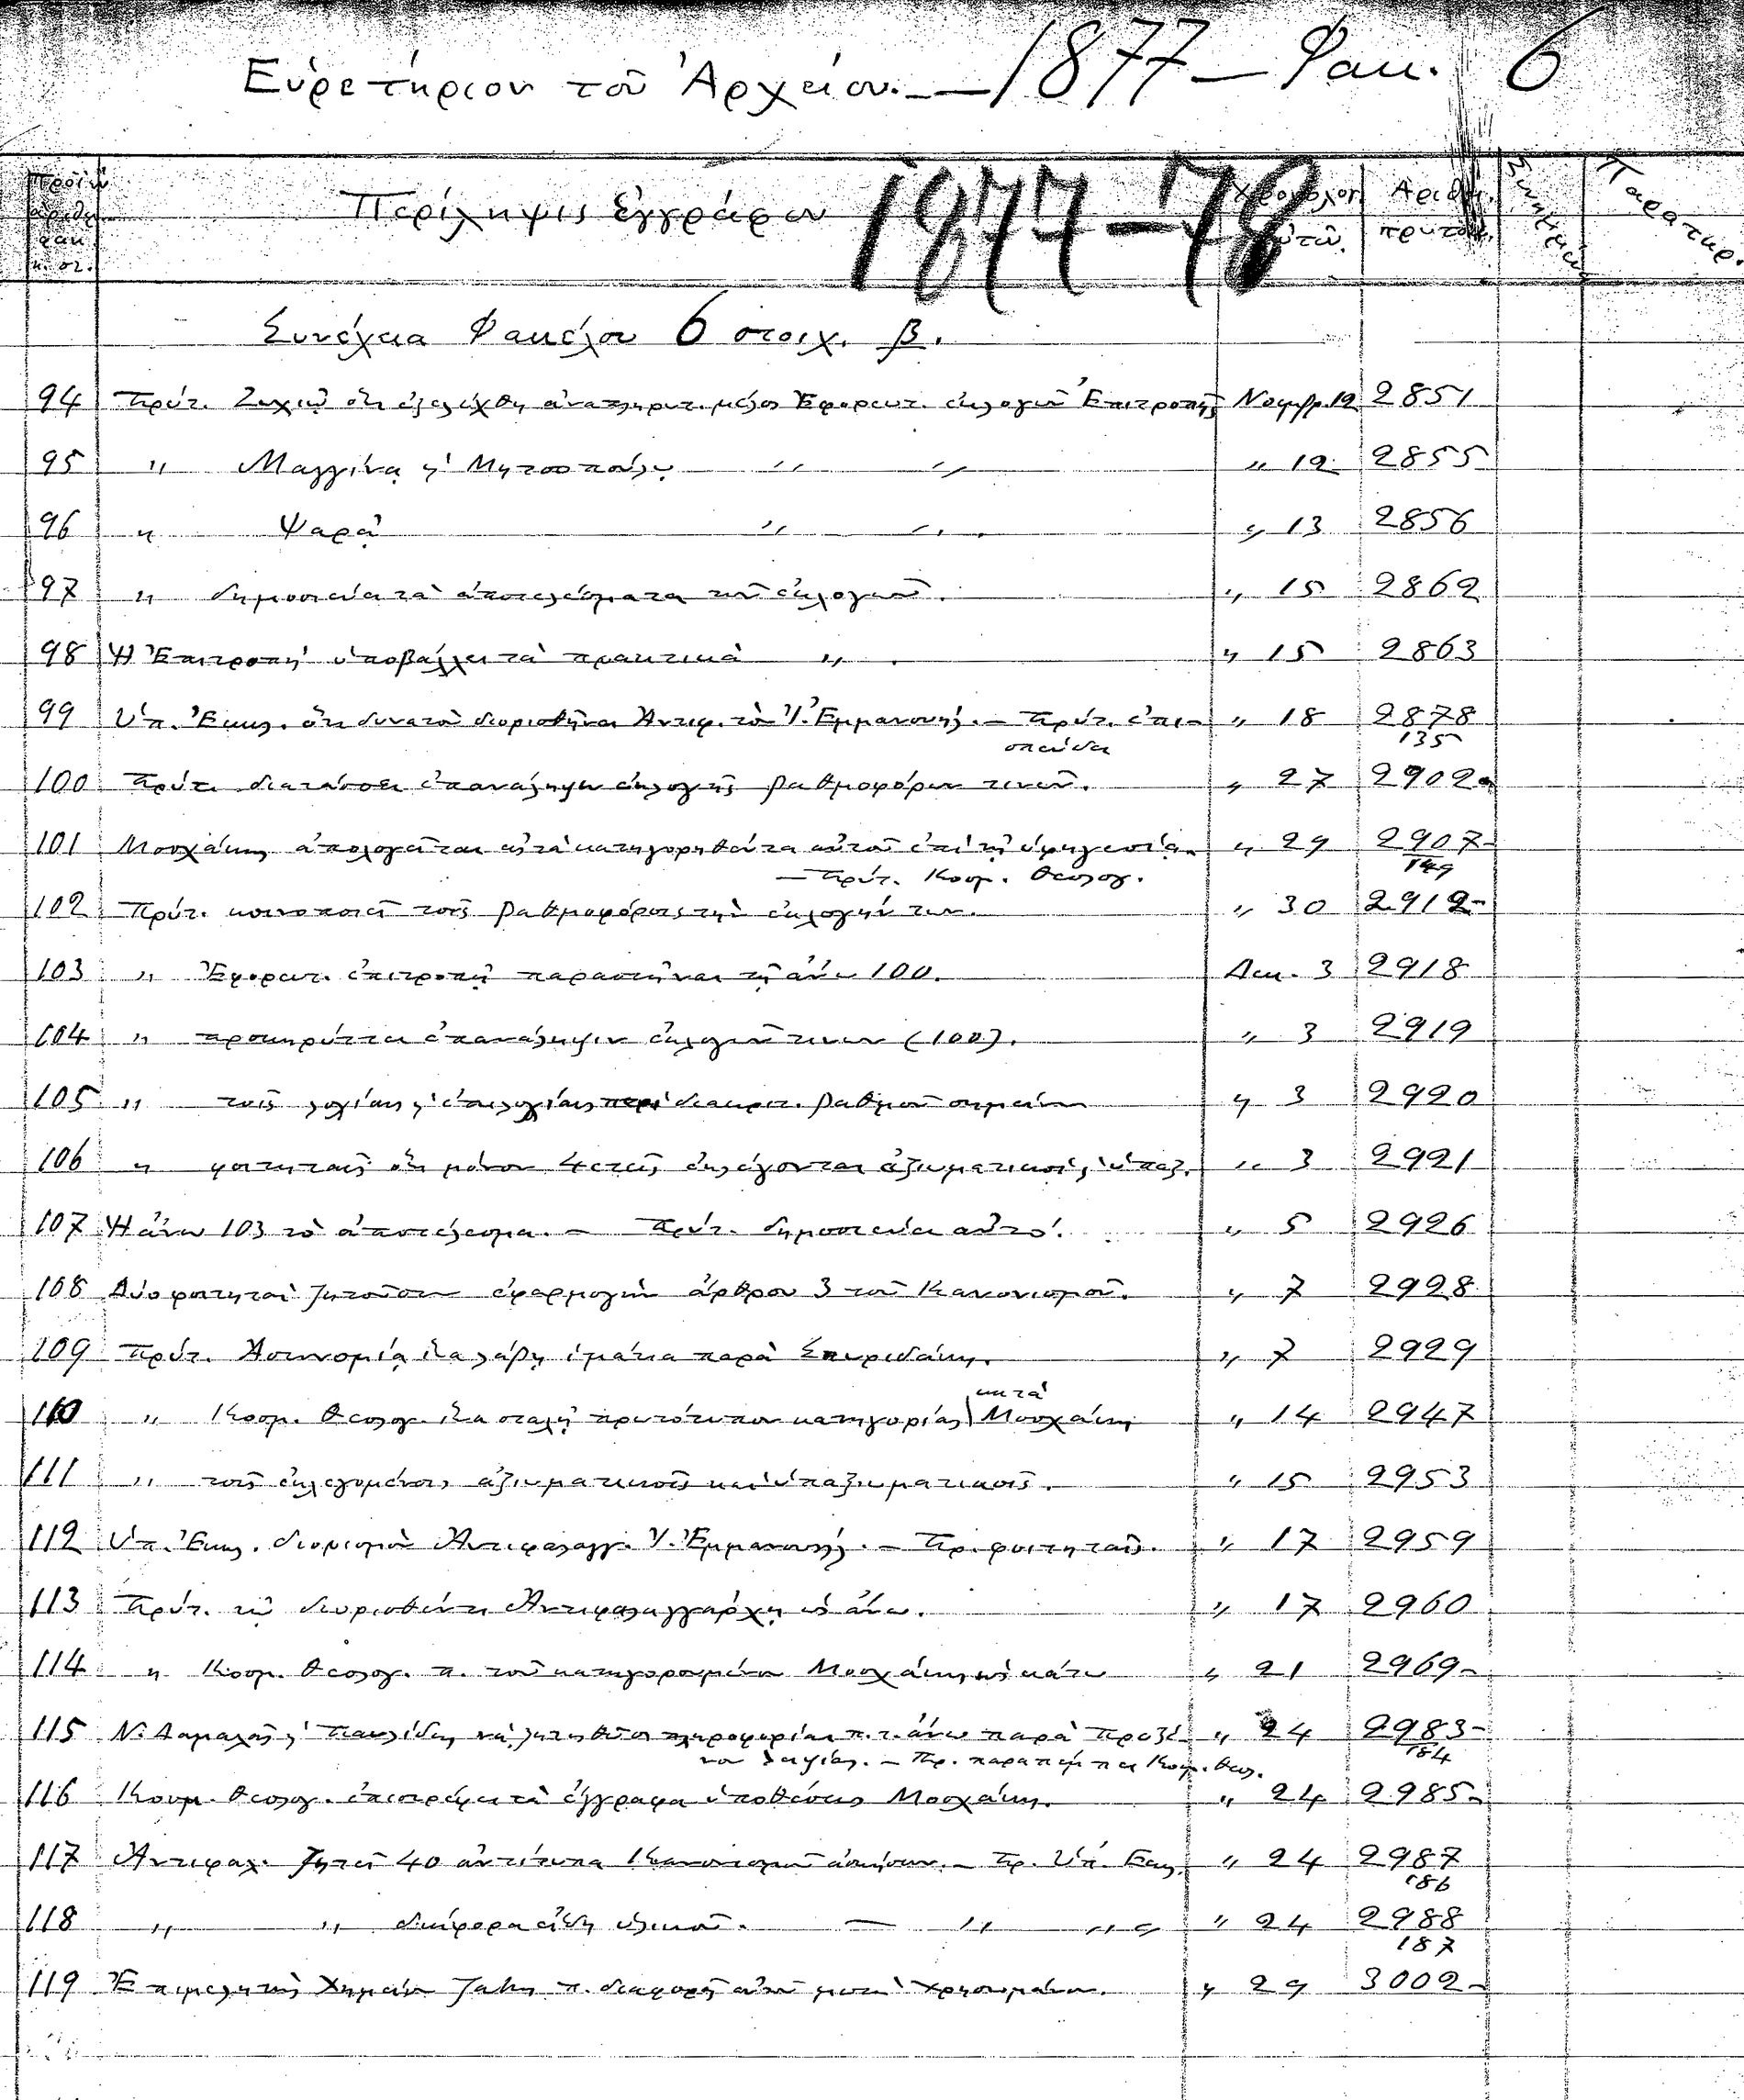 Εὑρετήριον τοῦ Ἀρχείου. — 1877 — Φακ. 6
Περίληψις ἐγγράφων 1877-78 Χρονολογ. αὐτῶν. Ἀριθμ. πρωτοκ. Παρατηρ.
Συνέχεια Φακέλου 6 στοιχ. β.
94 Πρύτ. ὅτι ἐξελέχθη ἀναπληρωτ. μέλος Ἐφορευτ. ἐκλογῶν Ἐπιτροπῆς Νοεμβρ. 12 2851
95 〃 Μαγγίνα κ' Μητσοπούλῳ 〃 〃 〃 12 2855
96 〃 Ψαρᾷ 〃 〃 〃 13 2856
97 〃 δημοσιεύει τὰ ἀποτελέσματα τῶν ἐκλογῶν. 〃 15 2862
98 Ἡ Ἐπιτροπὴ ὑποβάλλει τὰ πρακτικὰ 〃 〃 15 2863
99 Ὑπ. Ἐκκλ. ὅτι δυνατὸν διορισθῆναι Ἀντιφ. τὸν Ἰ. Ἐμμανουήλ. — Πρύτ. ἐπι- 〃 18 2878
σπεύδει 135
100 Πρύτ. διατάσσει ἐπανάληψιν ἐκλογῆς βαθμοφόρων τινῶν. 〃 27 2902
101 Μοσχάκης ἀπολογεῖται εἰς τὰ κατηγορηθέντα αὐτοῦ ἐπὶ τῇ ὑφηγεσίᾳ. 〃 29 2907
— Πρύτ. Κοσμ. Θεολογ. 149
102 Πρύτ. κοινοποιεῖ τοῖς βαθμοφόροις τὴν ἐκλογήν των. 〃 30 2912
103 〃 Ἐφορευτ. ἐπιτροπῇ παραστῆναι τῇ ἄνω 100. Δεκ. 3 2918
104 〃 προκηρύττει ἐπανάληψιν ἐκλογῶν τινων (100). 〃 3 2919
105 〃 τοῖς λοχίαις κ' ἐπιλοχίαις περὶ διακριτ. βαθμοῦ σημείων 〃 3 2920
106 〃 φοιτηταῖς ὅτι μόνον 4ετεῖς ἐκλέγονται ἀξιωματικοί, ὑπαξ. 〃 3 2921
107 Ἡ ἄνω 103 τὸ ἀποτέλεσμα. — Πρύτ. δημοσιεύει αὐτό. 〃 5 2926
108 Δύο φοιτηταὶ ζητοῦσιν ἐφαρμογὴν ἄρθρου 3 τοῦ Κανονισμοῦ. 〃 7 2928
109 Πρύτ. Ἀστυνομίᾳ ἵνα λάβῃ ἱμάτια παρὰ Σπυριδάκη. 〃 7 2929
κατὰ
110 〃 Κοσμ. Θεολογ. ἵνα σταλῇ πρωτότυπον κατηγορίας Μοσχάκη 〃 14 2947
111 〃 τοῖς ἐκλεγομένοις ἀξιωματικοῖς καὶ ὑπαξιωματικοῖς. 〃 15 2953
112 Ὑπ. Ἐκκλ. διορισμὸν Ἀντιφαλαγγ. Ἰ. Ἐμμανουήλ. — Πρ. φοιτηταῖς. 〃 17 2959
113 Πρύτ. τῷ διορισθέντι Ἀντιφαλαγγάρχῃ ὡς ἄνω. 〃 17 2960
114 〃 Κοσμ. Θεολογ. π. τοῦ κατηγορουμένου Μοσχάκη ὡς κάτω 〃 21 2969
115 Ν. Δαμαλᾶς κ' Παυλίδης νὰ ζητηθῶσι πληροφορίαι π. τ. ἄνω παρὰ Προξέ- 〃 24 2983
νου Λειψίας. — Πρ. παραπέμπει Κοσμ. Θεολ. 184
116 Κοσμ. Θεολογ. ἐπιστρέφει τὰ ἔγγραφα ὑποθέσεως Μοσχάκη. 〃 24 2985
117 Ἀντιφαλ. ζητεῖ 40 ἀντίτυπα Κανονισμοῦ ἀσκήσεων. — Πρ. Ὑπ. Ἐκκλ. 〃 24 2987
186
118 〃 〃 διάφορα εἴδη ὑλικοῦ. — 〃 〃 〃 24 2988
187
119 Ἐπιμελητὴς Χημείου Ζαλη. π. διαφορᾶς αὐτοῦ μετὰ Χρηστομάνου. 〃 29 3002